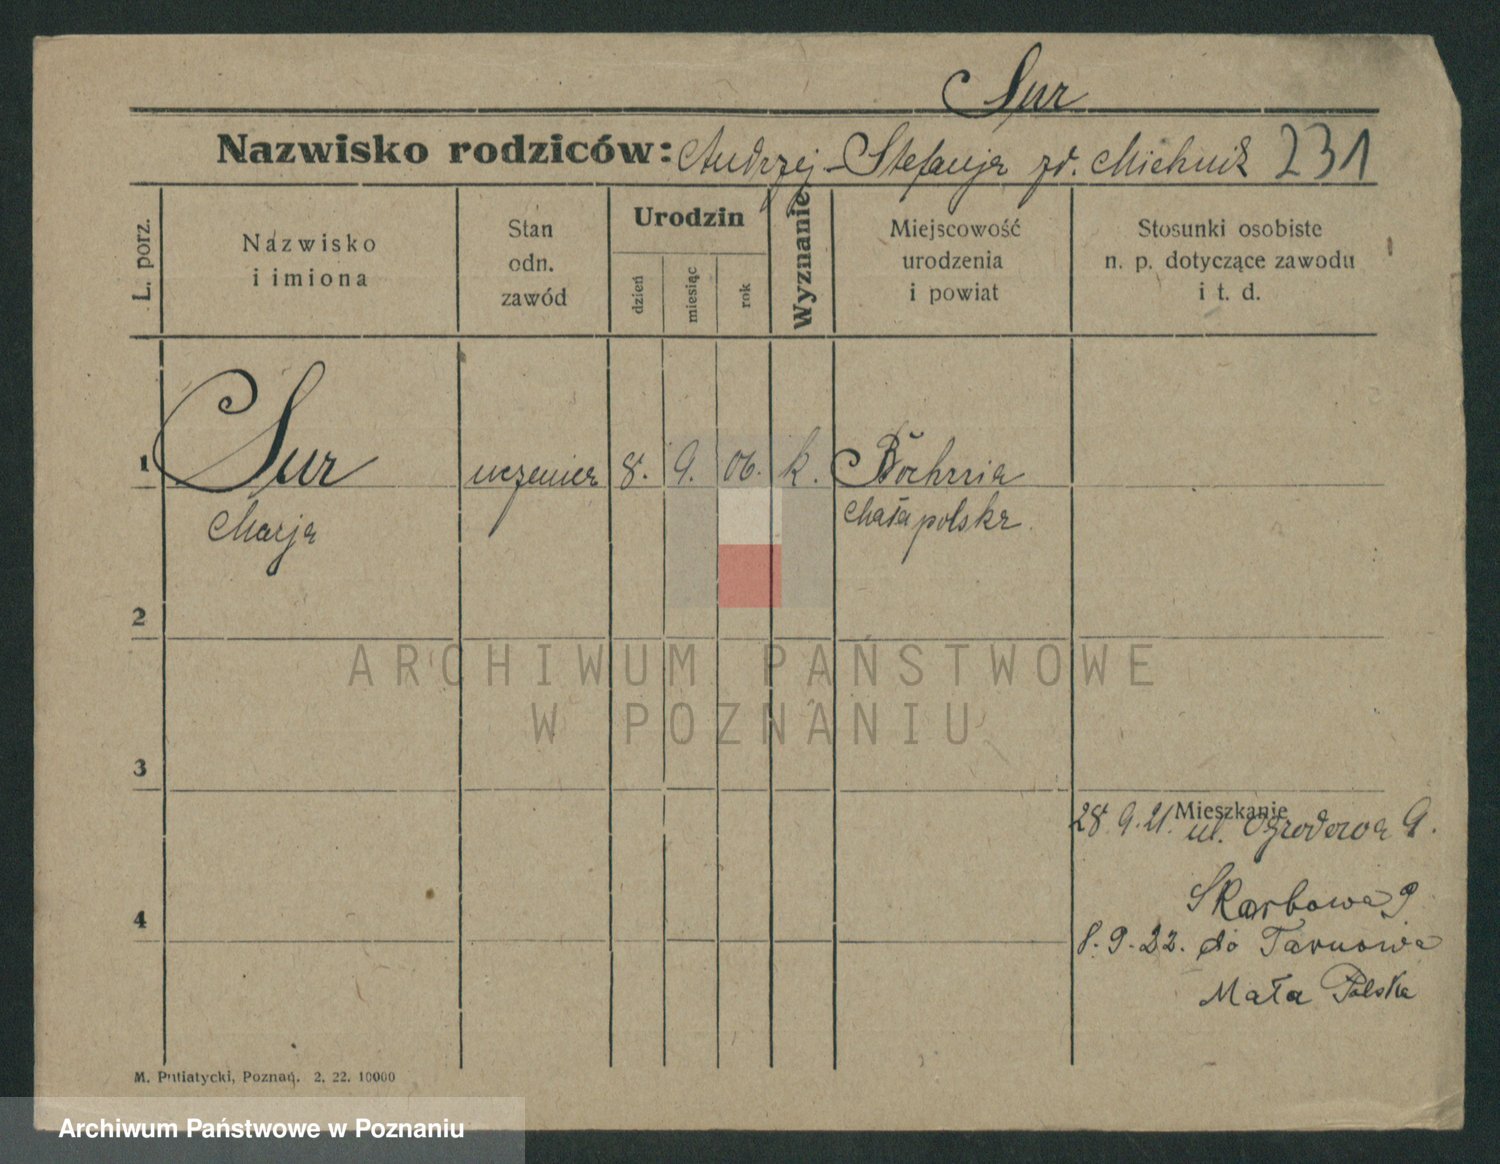 Sur
Nazwisko rodziców: Andrzej - Stefanja zd. Michnik 231
L. porz.
Nazwisko
i imiona
Stan
odn.
zawód
Urodzin
dzień
miesiąc
rok
Wyznanie
Miejscowość
urodzenia
i powiat
Stosunki osobiste
n. p. dotyczące zawodu
i t. d.
1 Sur uczenica 8. 9. 06. k. Bochnia
Marja Małapolska.
2
ARCHIWUM PAŃSTWOWE
W POZNANIU
3
Mieszkanie
28. 9. 21. ul. Ogrodowa 9.
Skarbowa 9
4
8. 9. 22. do Tarnowa
Mała Polska
M. Putiatycki, Poznań. 2. 22. 10000
Archiwum Państwowe w Poznaniu